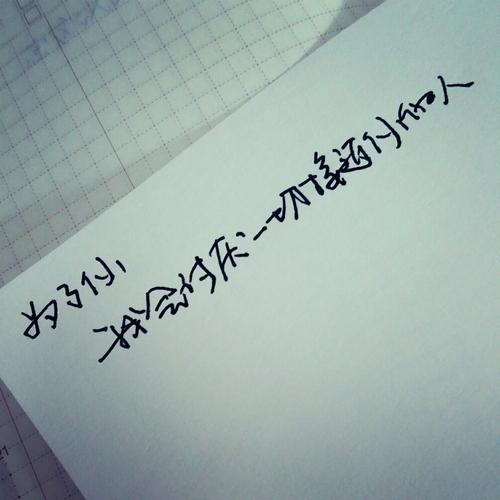 为了你,
我会讨厌一切接你的人